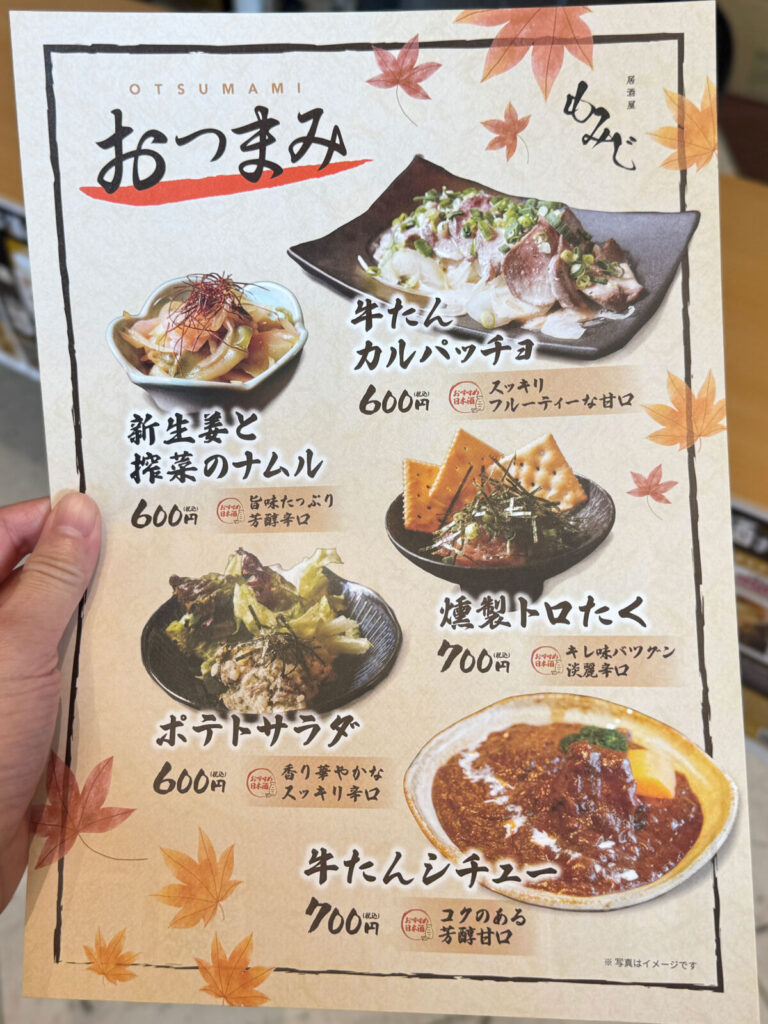 OTSUMAMI
おつまみ
居酒屋
もみじ
牛たん
カルパッチョ
600円(税込)
おすすめ
日本酒
スッキリ
フルーティーな甘口
新生姜と
搾菜のナムル
600円(税込)
おすすめ
日本酒
旨味たっぷり
芳醇辛口
燻製トロたく
700円(税込)
おすすめ
日本酒
キレ味バツグン
淡麗辛口
ポテトサラダ
600円(税込)
おすすめ
日本酒
香り華やかな
スッキリ辛口
牛たんシチュー
700円(税込)
おすすめ
日本酒
コクのある
芳醇甘口
※写真はイメージです